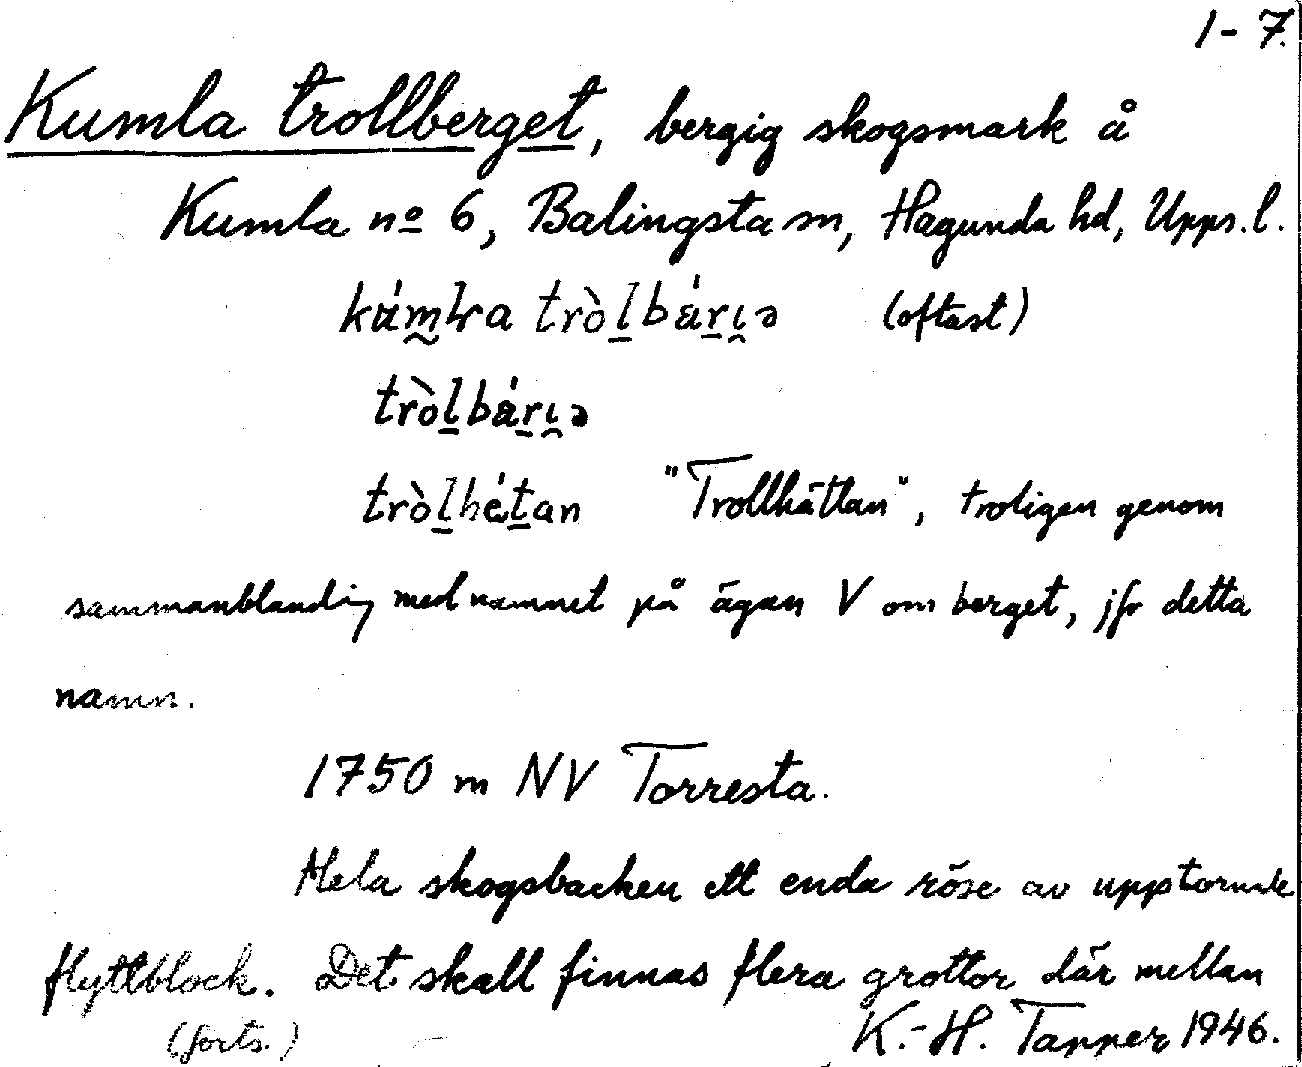 1-7.
Kumla trollberget, bergig skogsmark å
Kumla nº 6, Balingsta sn, Hagunda hd, Upps. l.
(oftast)
"Trollhättan", troligen genom
sammanblandning med namnet på ägan V om berget, jfr detta
namn.
1750 m NV Torresta.
Hela skogsbacken ett enda röse av upptornade
flyttblock. Det skall finnas flera grottor där mellan
(forts.) K.-H. Tapper 1946.